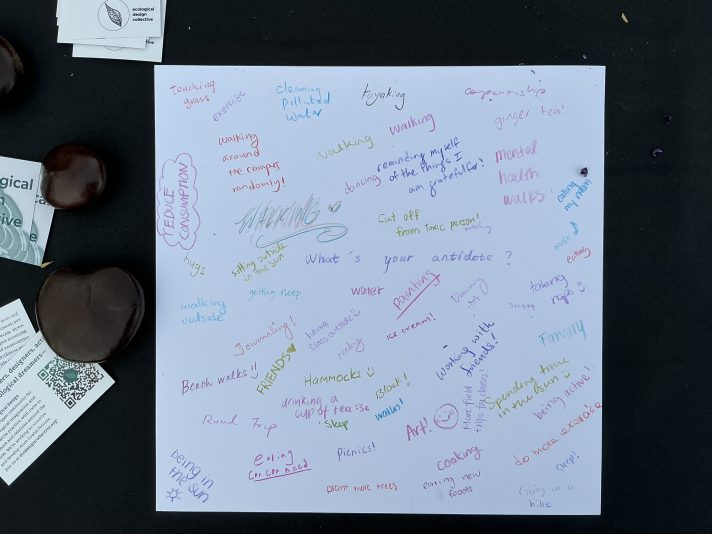 ecological
design
collective
touching
grass
exercise
cleaning
polluted
water
kayaking
companionship
ginger tea!
walking
around
the campus
randomly!
walking
walking
reminding myself
of the things I
am grateful for!
dancing
mental
health
walks
calling
my mom
REDUCE
CONSUMPTION
Cut off
from toxic person!
music
eating
hugs
sitting outside
in the sun
What's your antidote?
walking
outside
getting sleep
water
painting
singing
taking
naps
Journaling!
FRIENDS
having
class outside
ice cream!
working with
friends!
Family
Beach walks!!
Hammocks
drinking a
cup of tea
sleep
walks!
Art!
More field
trips outdoors!
Spending time
in the sun
being active!
Road Trip
eating
Picnics!
cooking
eating new
foods
do more exercise
sleep!
being in
the sun
plant more trees
Going on a
hike